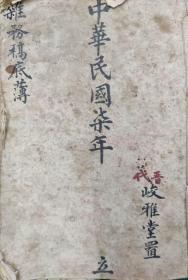 中華民國柒年 立
岐雅堂置
雜務稿底薄